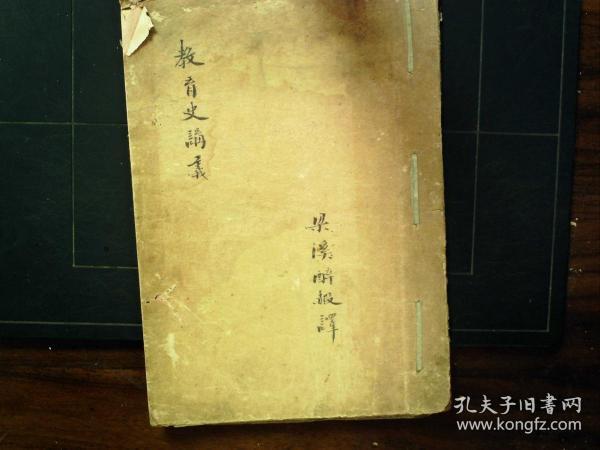 教育史講義
梁溪醉緞譯
孔夫子旧书网
www.kongfz.com